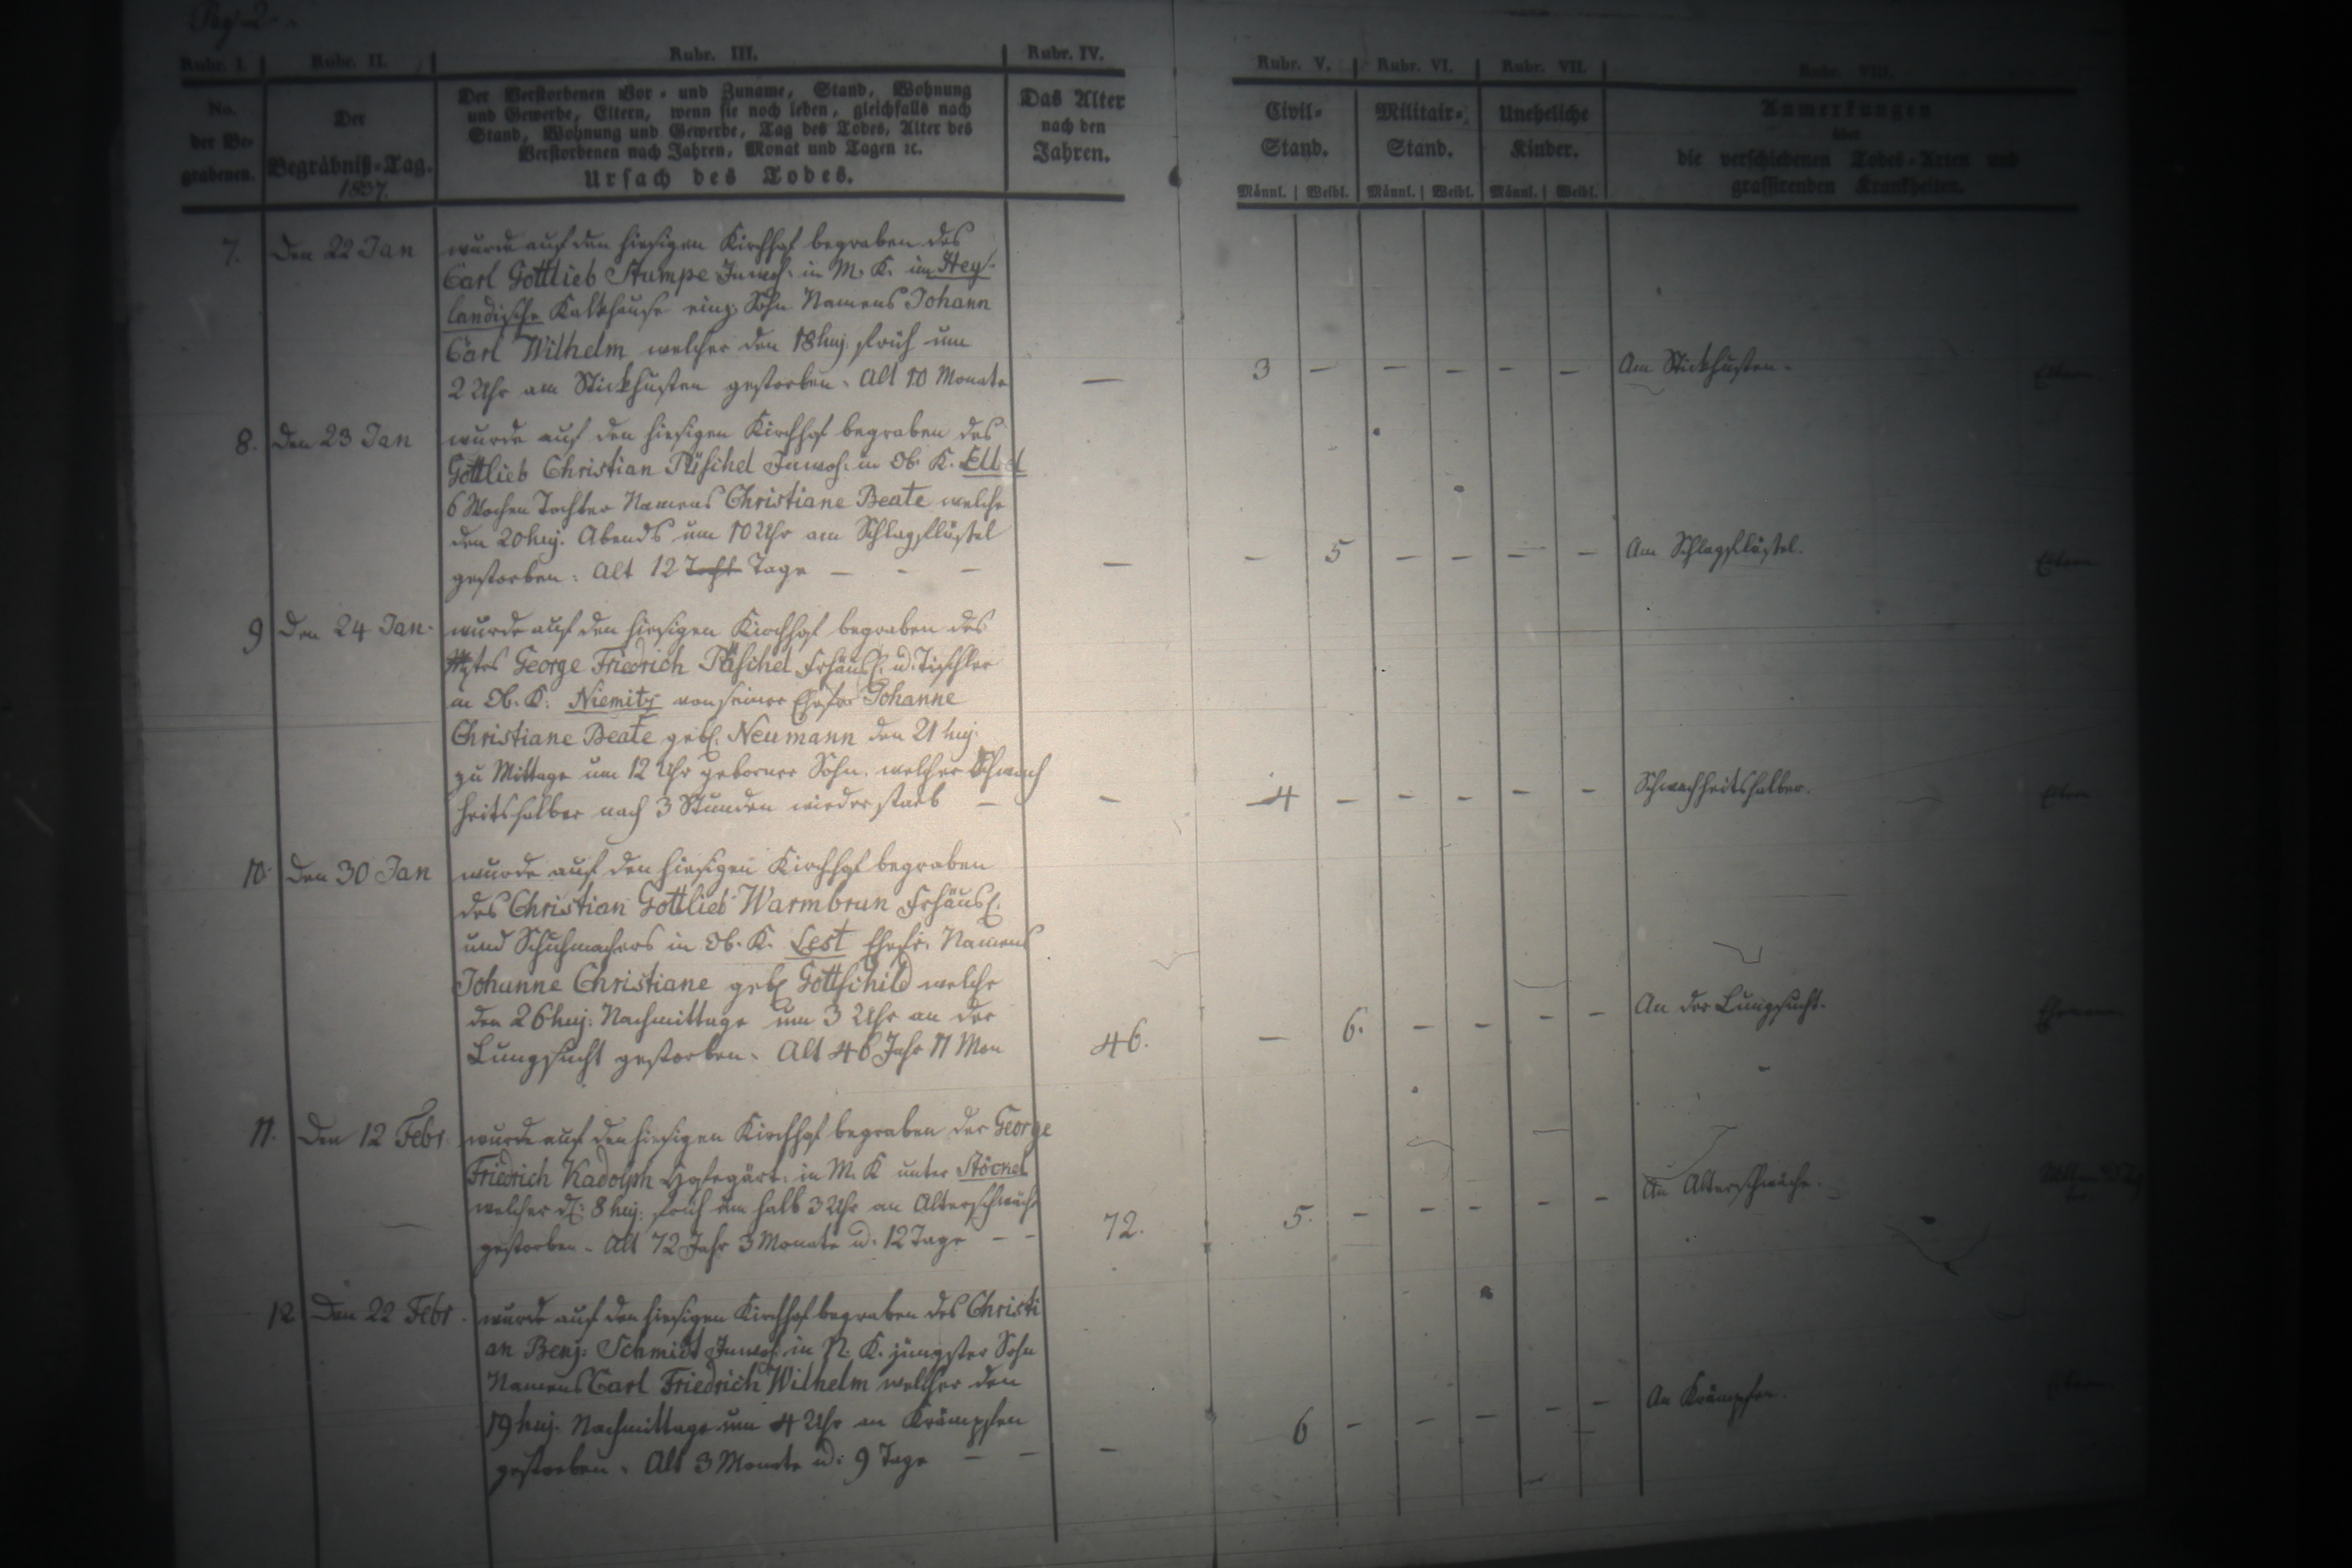 Pag. 2.
Rubr. I. Rubr. II. Rubr. III. Rubr. IV. Rubr. V. Rubr. VI. Rubr. VII. Rubr. VIII.
No. der Be-grabenen.
Der Begräbniß-Tag.
1837.
Der Verstorbenen Vor- und Zuname, Stand, Wohnung
und Gewerbe, Eltern, wenn sie noch leben, gleichfalls nach
Stand, Wohnung und Gewerbe, Tag des Todes, Alter des
Verstorbenen nach Jahren, Monat und Tagen ꝛc.
Ursach des Todes.
Das Alter
nach den
Jahren.
Civil-
Stand.
Männl. Weibl.
Militair-
Stand.
Männl. Weibl.
Uneheliche
Kinder.
Männl. Weibl.
Anmerkungen
über
die verschiedenen Todes-Arten und
grassirenden Krankheiten.
7. Den 22 Jan
wurde auf den hiesigen Kirchhof begraben des
Carl Gottlieb Stumpe Inwoh: in M. K. im Hey-
landische Kalkhause einz. Sohn Namens Johann
Carl Wilhelm welcher den 18 huj. früh um
2 Uhr am Stickhusten gestorben. Alt 10 Monate
— 3 — — — — —
Am Stickhusten.
Eltern
8. Den 23 Jan
wurde auf den hiesigen Kirchhof begraben des
Gottlieb Christian Püschel Inwoh: in Ob. K.
6 Wochen Tochter Namens Christiane Beate welche
den 20 huj. Abends um 10 Uhr am Schlagflüssel
gestorben: Alt 12 Tage — - —
— — 5 — — — —
Am Schlagflüssel.
Eltern
9 Den 24 Jan.
wurde auf den hiesigen Kirchhof begraben des
George Friedrich Püschel Frhäusl. u. Tischler
in Ob. K. Niemitz von seiner Ehefr Johanne
Christiane Beate gebl. Neumann den 21 huj.
zu Mittage um 12 Uhr geborner Sohn. welcher Schwach
heitshalber nach 3 Stunden wieder starb —
— 4 — — — — —
Schwachheitshalber.
Eltern
10. Den 30 Jan
wurde auf den hiesigen Kirchhof begraben
des Christian Gottlieb Warmbrun Frhäusl.
und Schuhmachers in Ob. K. Lest Ehefr. Namens
Johanne Christiane gebl Gottschild welche
den 26 huj: Nachmittags um 3 Uhr an der
Lungsucht gestorben. Alt 46 Jahr 11 Mon
46. — 6. — — — —
An der Lungsucht.
Ehemann
11. Den 12 Febr.
wurde auf den hiesigen Kirchhof begraben der George
Friedrich Kadolph Hofegärt: in M. K unter Stöckel
welcher d. 8 huj. früh um halb 3 Uhr an Alterschwäche
gestorben. Alt 72 Jahr 3 Monate u. 12 Tage — -
72. 5. — — — — —
An Alterschwäche.
12 Den 22 Febr.
wurde auf den hiesigen Kirchhof begraben des Christi
an Benj: Schmidt Inwoh: in N. K. jüngster Sohn
Namens Carl Friedrich Wilhelm welcher den
19 huj. Nachmittags um 4 Uhr an Krämpfen
gestorben. Alt 3 Monate u: 9 Tage — —
— 6 — — — — —
An Krämpfen.